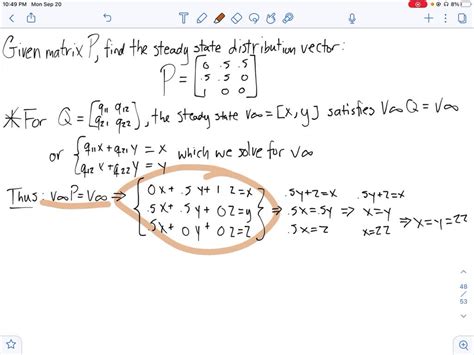 10:49 PM Mon Sep 20 8%
Given matrix P, find the steady state distribution vector:
P = [0 .5 .5
.5 .5 0
1 0 0]
*For Q = [q11 q12
q21 q22], the steady state v∞ = [x, y] satisfies v∞Q = v∞
or {q11x + q21y = x
q12x + q22y = y which we solve for v∞
Thus: v∞P = v∞ ⇒ {0x + .5y + 1z = x
.5x + .5y + 0z = y
.5x + 0y + 0z = z} ⇒ .5y+z=x
.5x=.5y
.5x=z
⇒ .5y+z=x
x=y
x=2z
⇒ x=y=2z
48
/
53